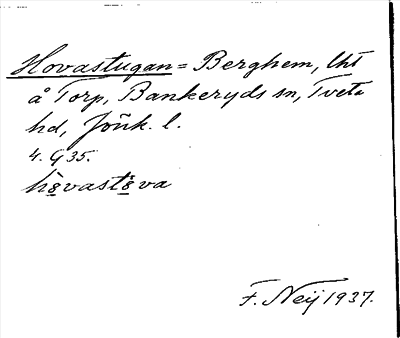 Hovastugan = Berghem, lht
å Torp, Bankeryds sn, Tveta
hd, Jönk. l.
4. G 35.
h&vast&va
F. Neij 1937.